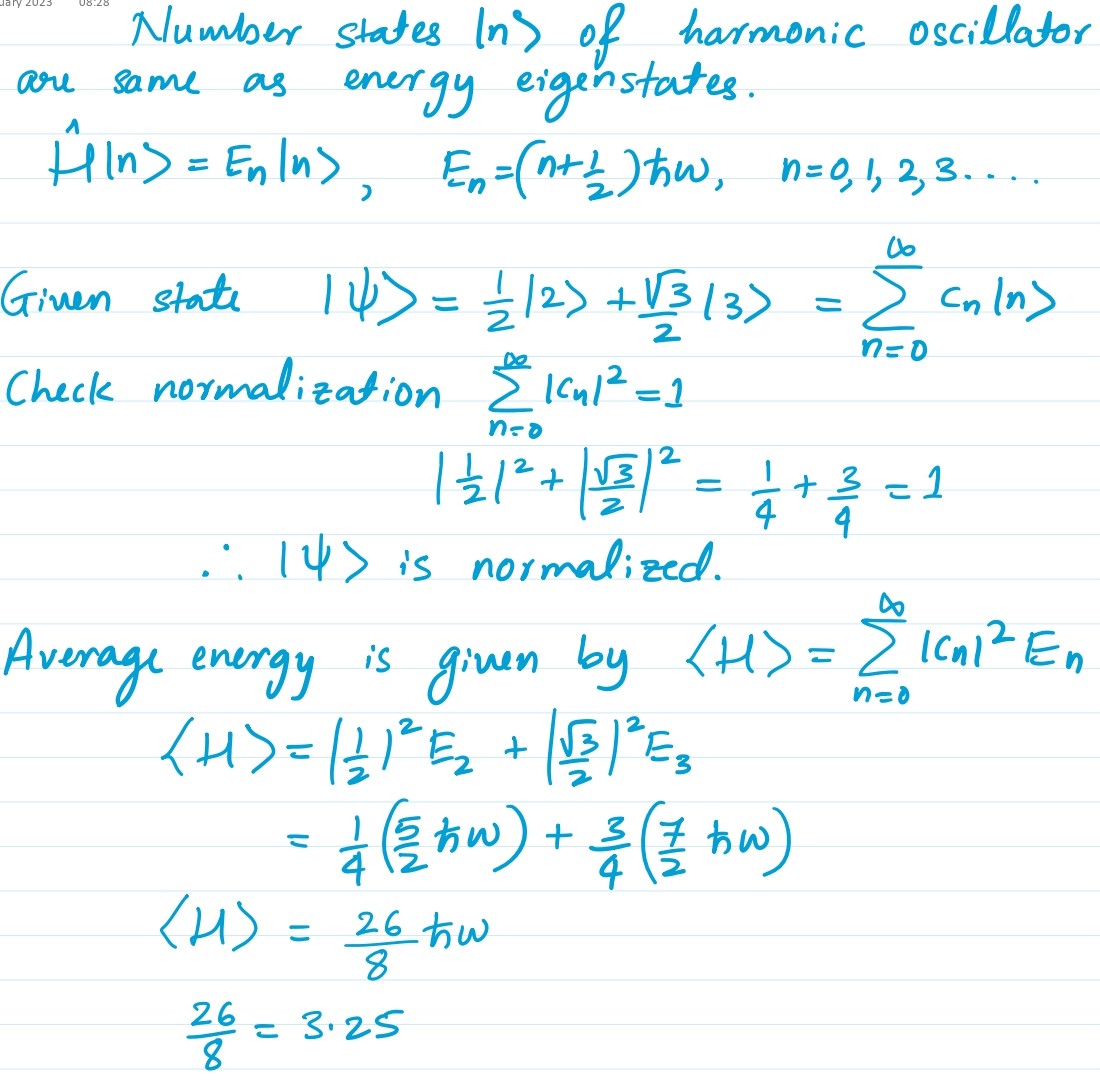 uary 2023 08:28
Number states |n> of harmonic oscillator
are same as energy eigenstates.
Ĥ|n> = Eₙ|n>, Eₙ=(n+1/2)ħω, n=0,1,2,3....
Given state |ψ> = 1/2|2> + √3/2|3> = ∑_{n=0}^{∞} cₙ|n>
Check normalization ∑_{n=0}^{∞} |cₙ|² = 1
|1/2|² + |√3/2|² = 1/4 + 3/4 = 1
∴ |ψ> is normalized.
Average energy is given by <H> = ∑_{n=0}^{∞} |cₙ|² Eₙ
<H> = |1/2|² E₂ + |√3/2|² E₃
= 1/4(5/2 ħω) + 3/4(7/2 ħω)
<H> = 26/8 ħω
26/8 = 3.25